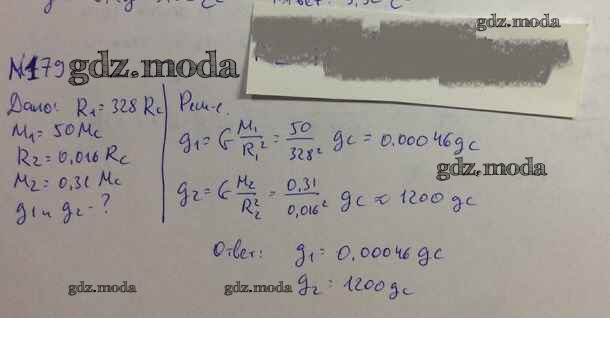 №179 gdz.moda
Дано: R₁=328 Rc
M₁=50Mc
R₂=0,016 Rc
M₂=0,31 Mc
g₁ и g₂-?
Реш-е.
g₁= G M₁/R₁² = 50/328² gc = 0.00046gc
gdz.moda
g₂= G M₂/R₂² = 0,31/0,016² gc ≈ 1200 gc
Ответ: g₁= 0,00046 gc
gdz.moda gdz.moda
g₂ = 1200gc